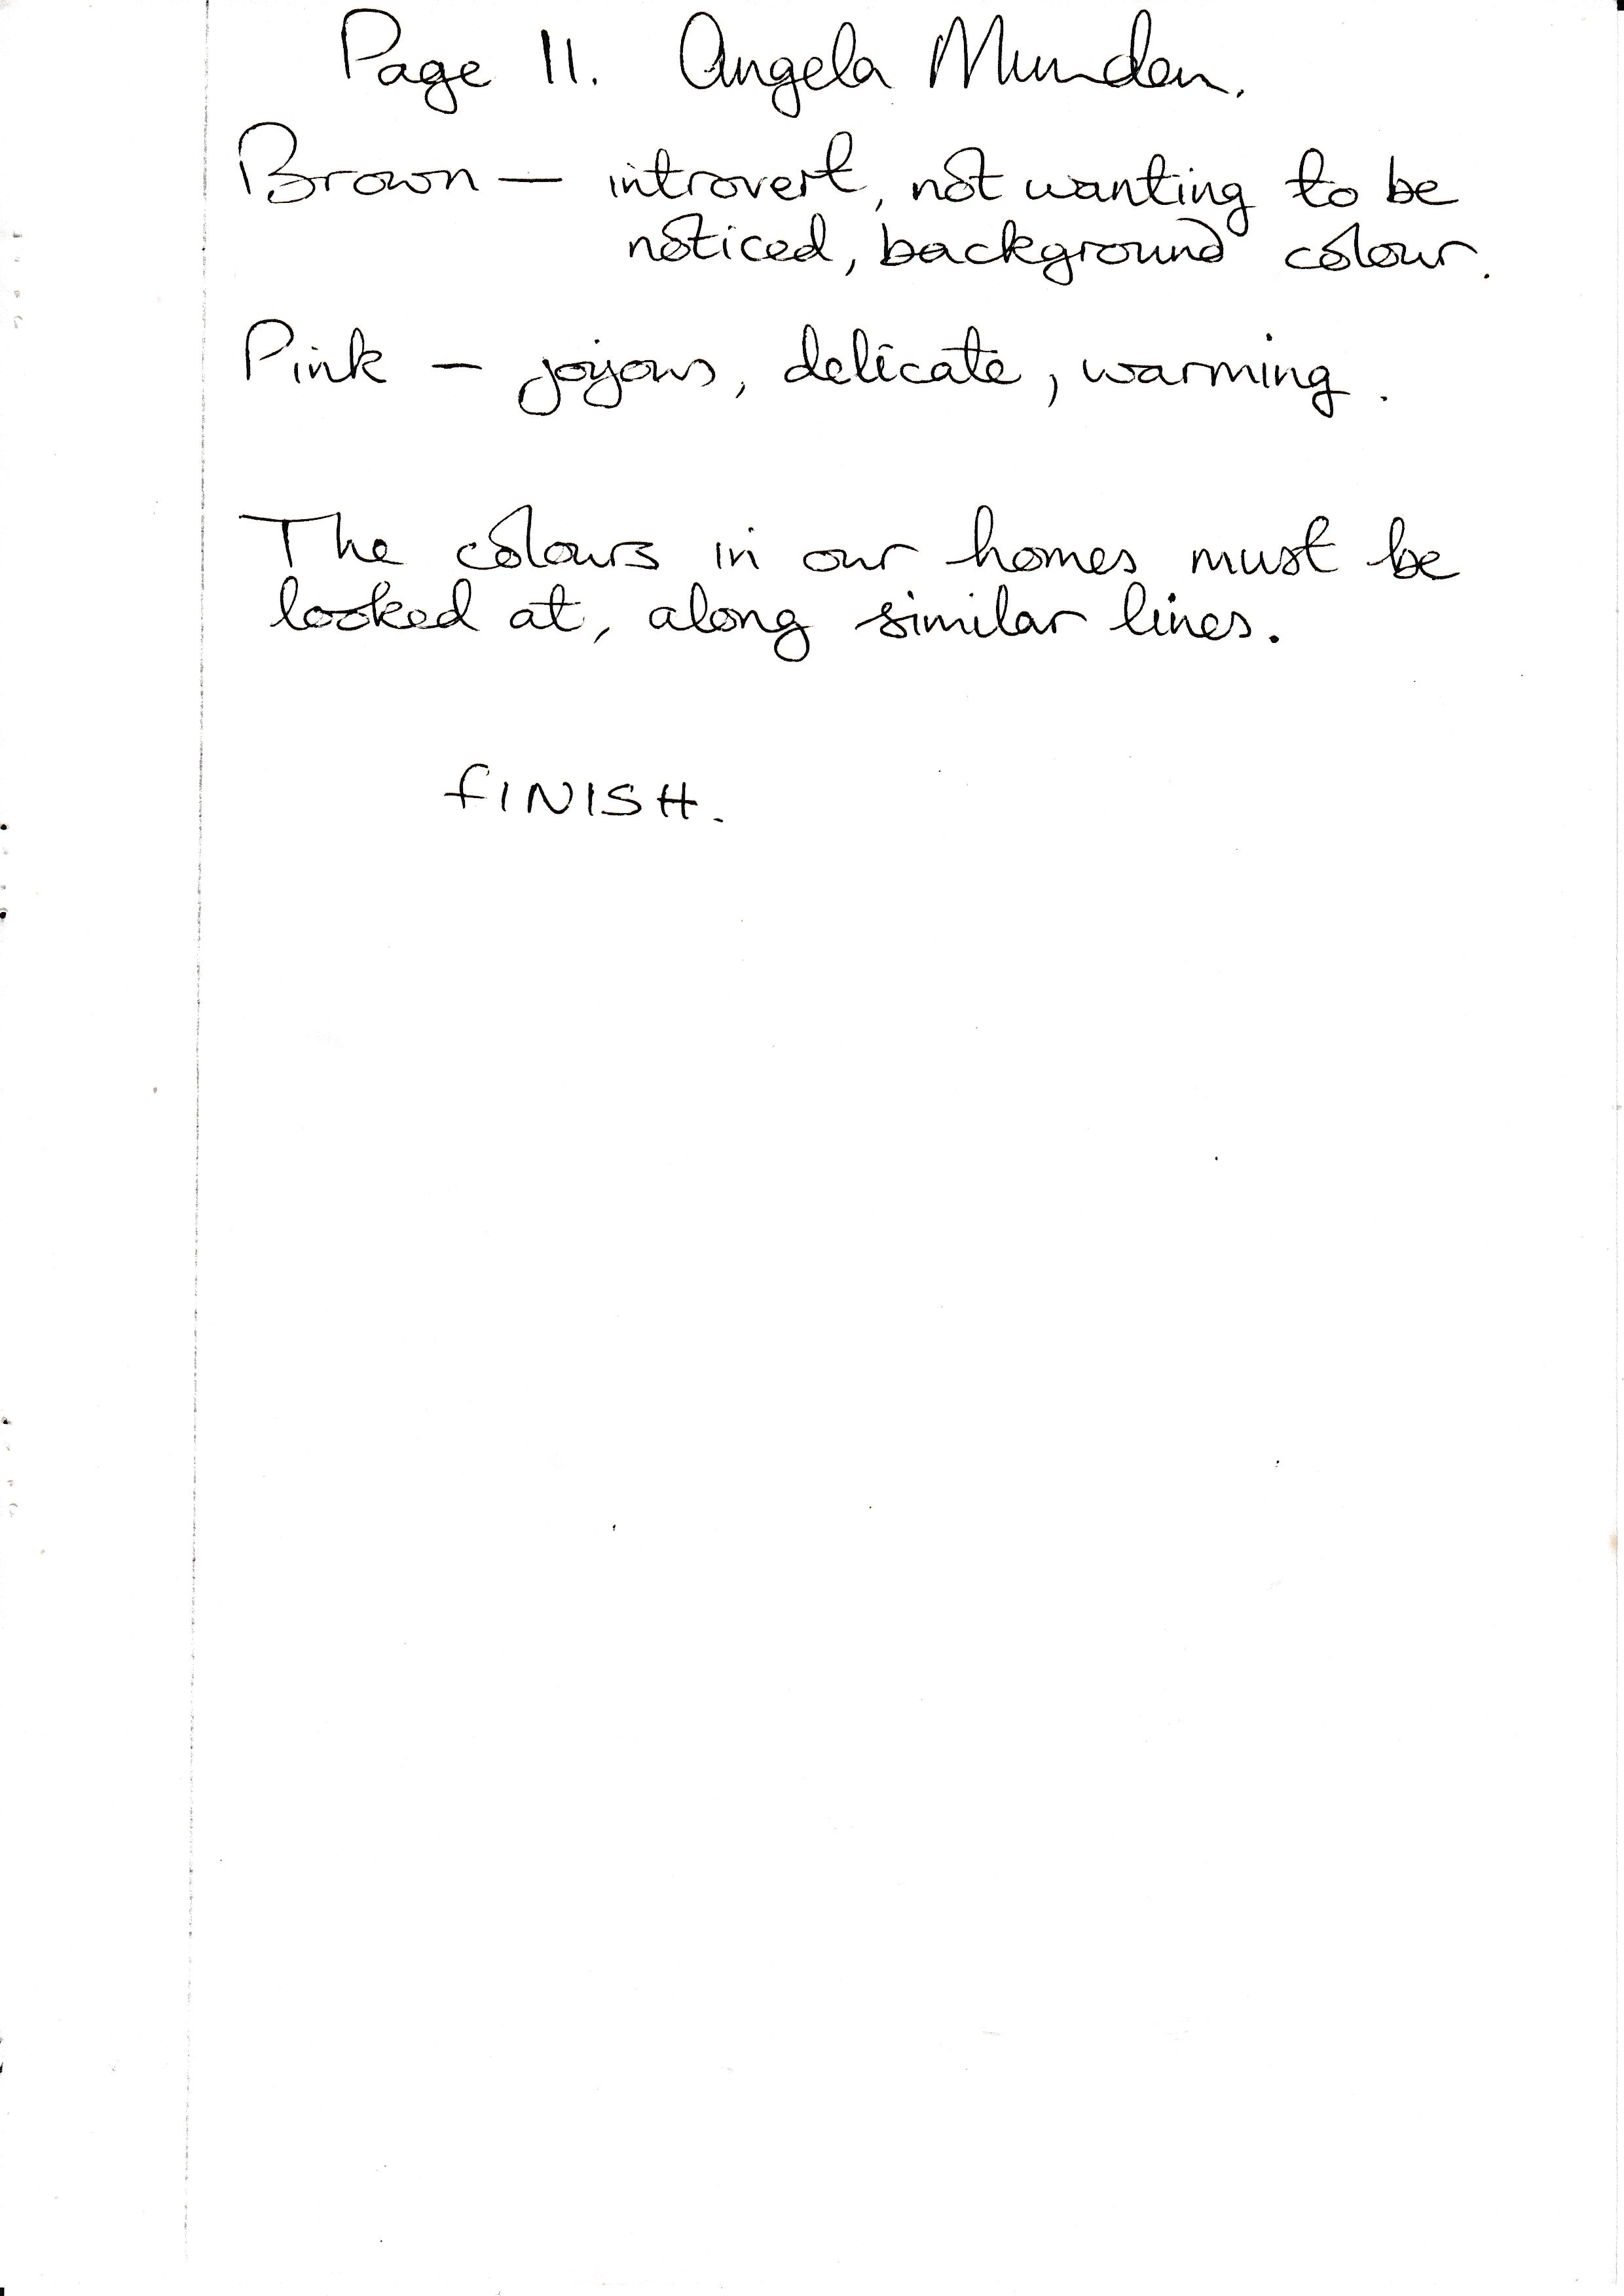 Page 11. Angela Munden.
Brown — introvert, not wanting to be
noticed, background colour.
Pink — joyous, delicate, warming.
The colours in our homes must be
looked at, along similar lines.
FINISH.